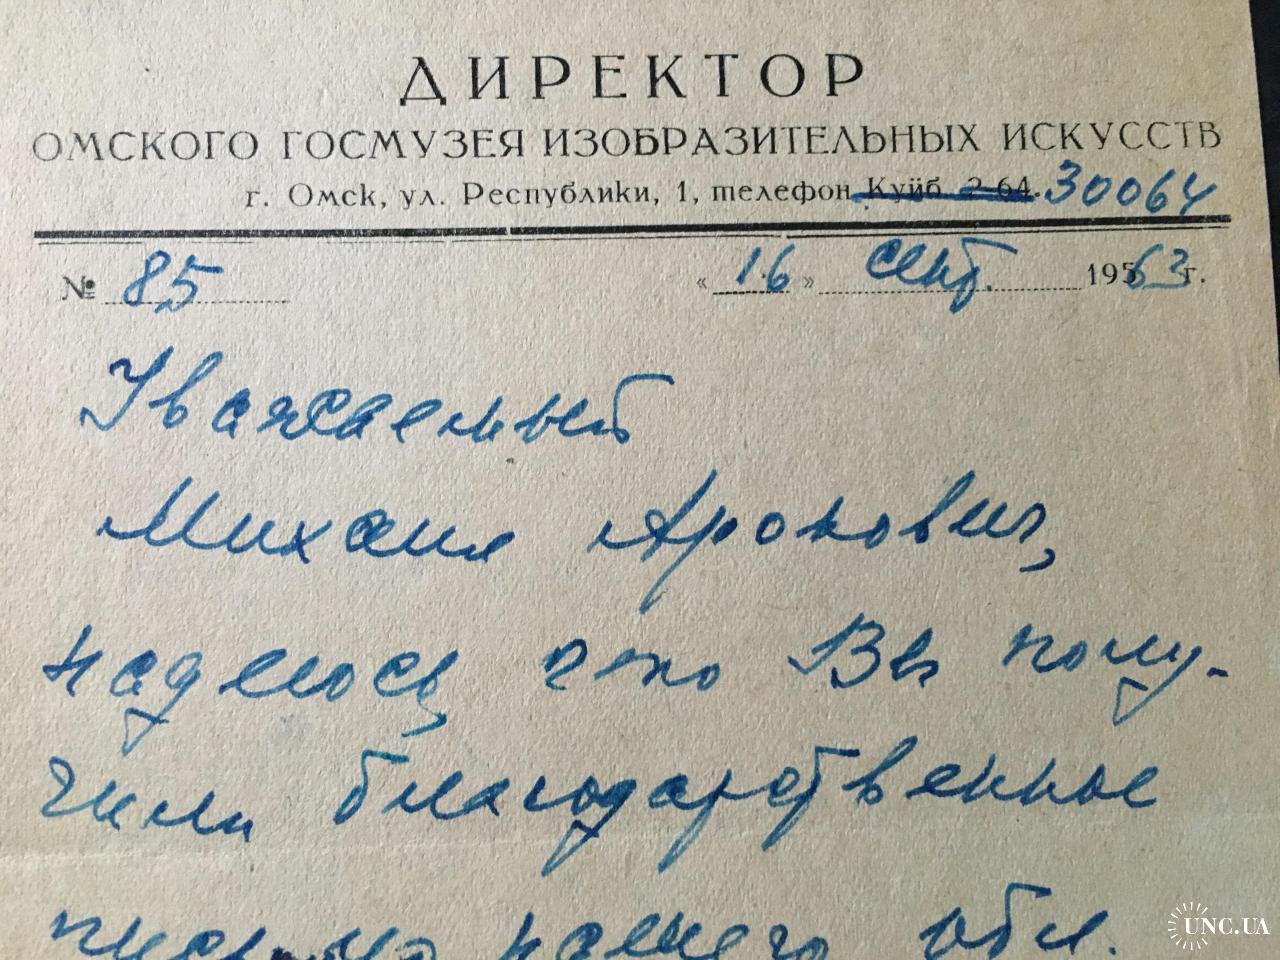 ДИРЕКТОР
ОМСКОГО ГОСМУЗЕЯ ИЗОБРАЗИТЕЛЬНЫХ ИСКУССТВ
г. Омск, ул. Республики, 1, телефон Куйб 2-64. 30064
№ 85 « 16 » сент. 1963 г.
Уважаемый
Михаил Аронович,
надеюсь что Вы полу-
чили благодарственное
письмо нашего обл.
UNC.UA